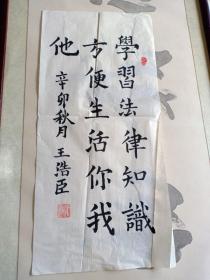 學習法律知識
方便生活你我
他
辛卯秋月 王浩臣